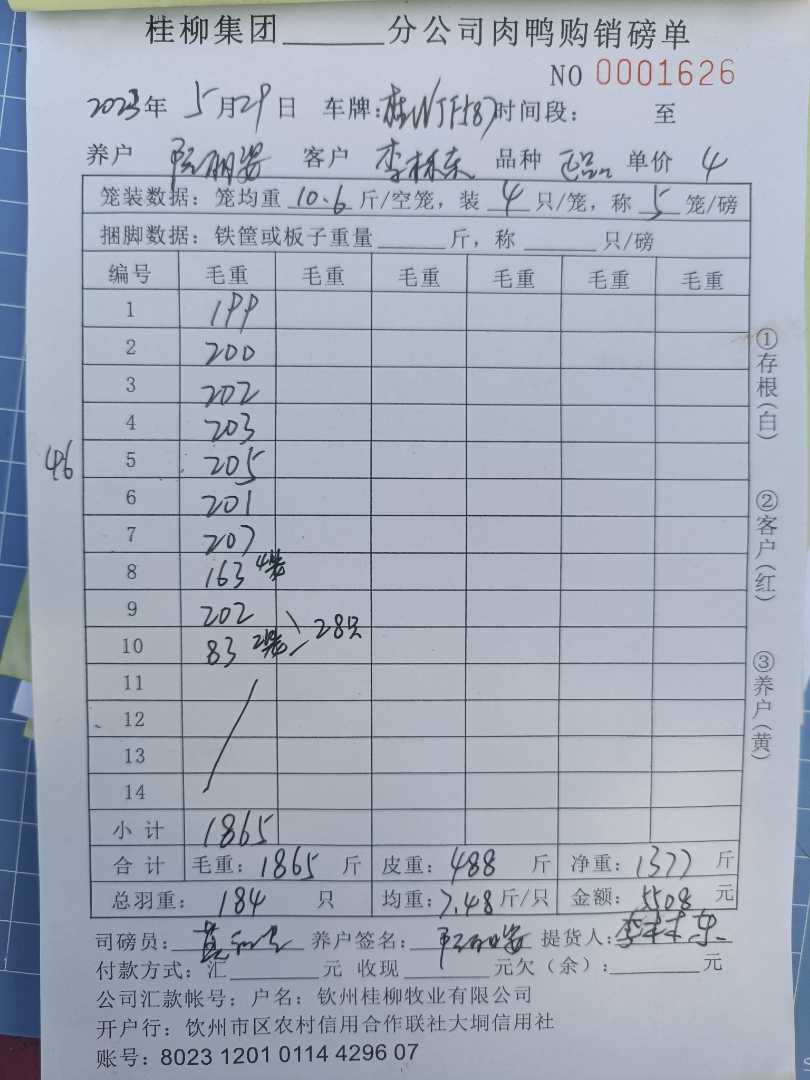 桂柳集团______分公司肉鸭购销磅单
NO 0001626
2023年 5月29日 车牌:桂NJF587 时间段: 至
养户 客户 李林东 品种 正品 单价 4
笼装数据: 笼均重 10.6 斤/空笼, 装 4 只/笼, 称 5 笼/磅
捆脚数据: 铁筐或板子重量______斤, 称______只/磅
编号 毛重 毛重 毛重 毛重 毛重 毛重
1 199
2 200
3 202
4 203
46 5 205
6 201
7 207
8 163 4笼
9 202
10 83 2笼 28只
11
12
13
14
小计 1865
合计 毛重: 1865 斤 皮重: 488 斤 净重: 1377 斤
总羽重: 184 只 均重: 7.48 斤/只 金额: 5508 元
司磅员: 养户签名: 提货人: 李林东
付款方式: 汇______元 收现______元欠(余):______元
公司汇款帐号: 户名: 钦州桂柳牧业有限公司
开户行: 钦州市区农村信用合作联社大垌信用社
账号: 8023 1201 0114 4296 07
①存根(白) ②客户(红) ③养户(黄)